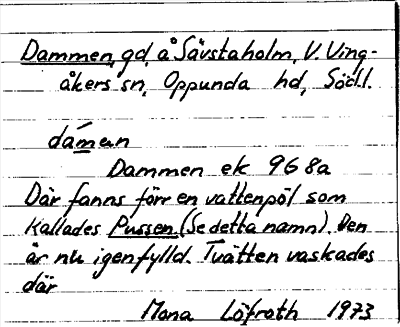 Dammen, gd å Sävstaholm, V. Ving-
åkers sn, Oppunda hd, Södl.
dámen
Dammen ek 968a
Där fanns förr en vattenpöl som
kallades Pussen. (Se detta namn). Den
är nu igenfylld. Tvätten vaskades
där
Mona Löfroth 1973